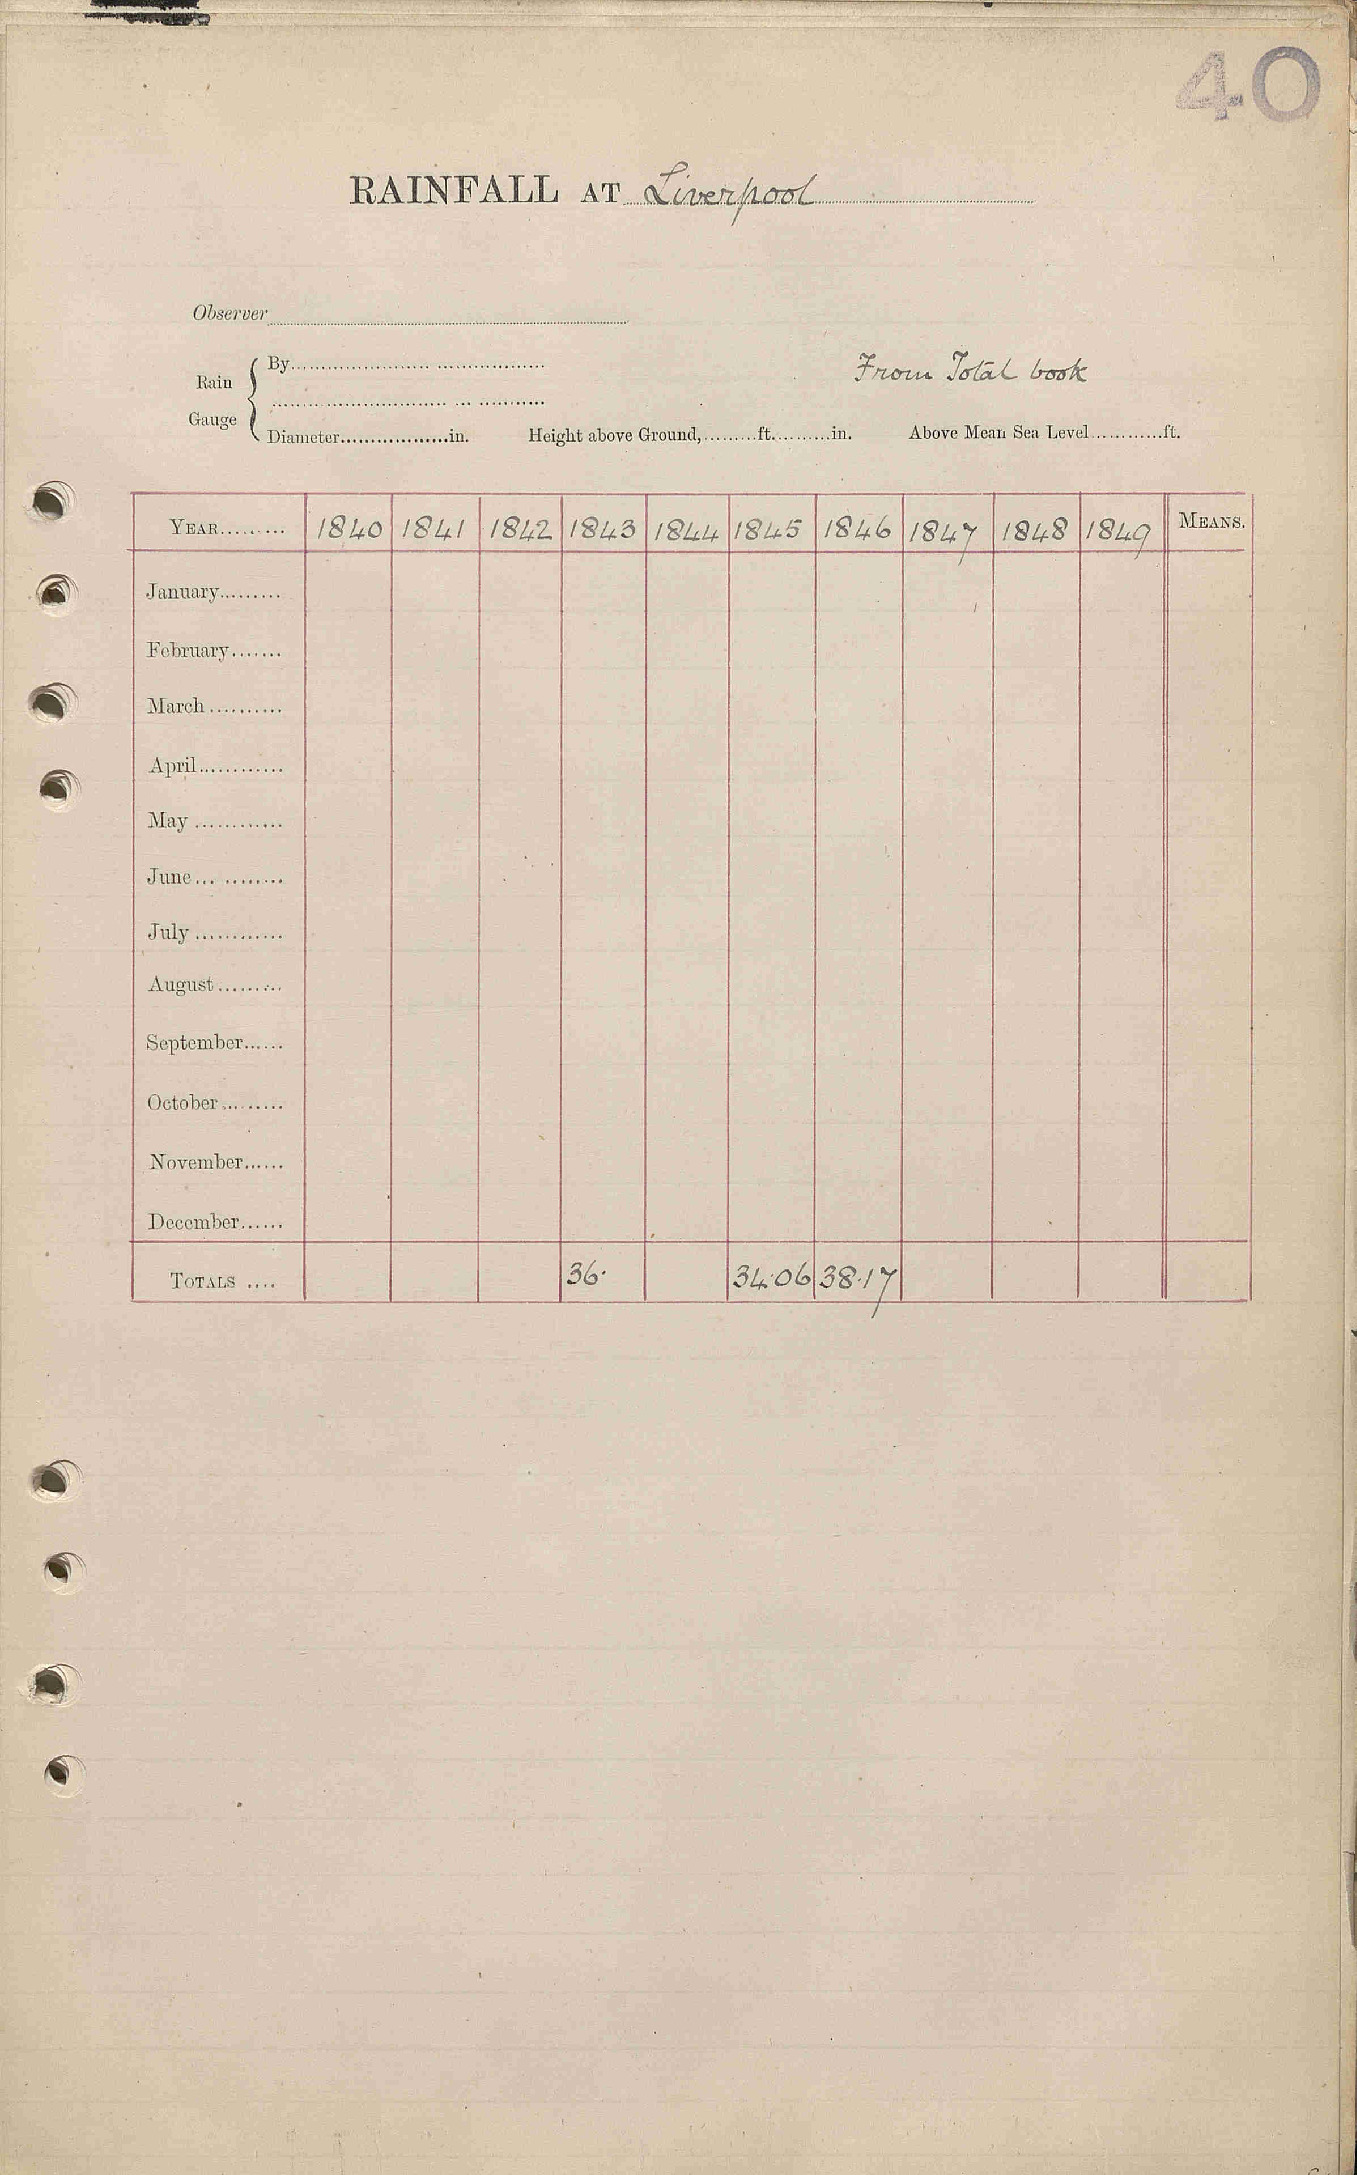 40
RAINFALL AT Liverpool
Observer
Rain Gauge { By
From Total book
Diameter..................in. Height above Ground,.........ft..........in. Above Mean Sea Level............ft.
YEAR......... 1840 1841 1842 1843 1844 1845 1846 1847 1848 1849 MEANS.
January.........
February.......
March..........
April............
May............
June............
July............
August.........
September......
October.........
November......
December......
TOTALS .... 36· 34·06 38·17